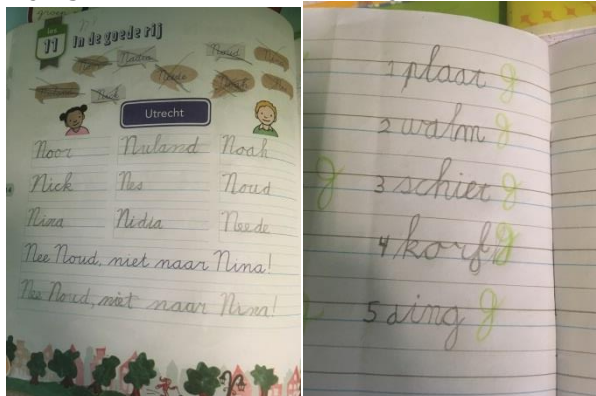 les
11 In de goede rij
Nadia
Noud
Neede
Nick
Utrecht
Noor Nuland Noah
Nick Nes Noud
Nina Nidia Neede
Nee Noud, niet naar Nina!
Nee Noud, niet naar Nina!
1 plaat g
2 walm g
g 3 schiet g
4 korf g
5 ding g